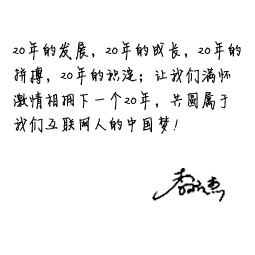 20年的发展，20年的成长，20年的
拼搏，20年的积淀；让我们满怀
激情相拥下一个20年，共圆属于
我们互联网人的中国梦！